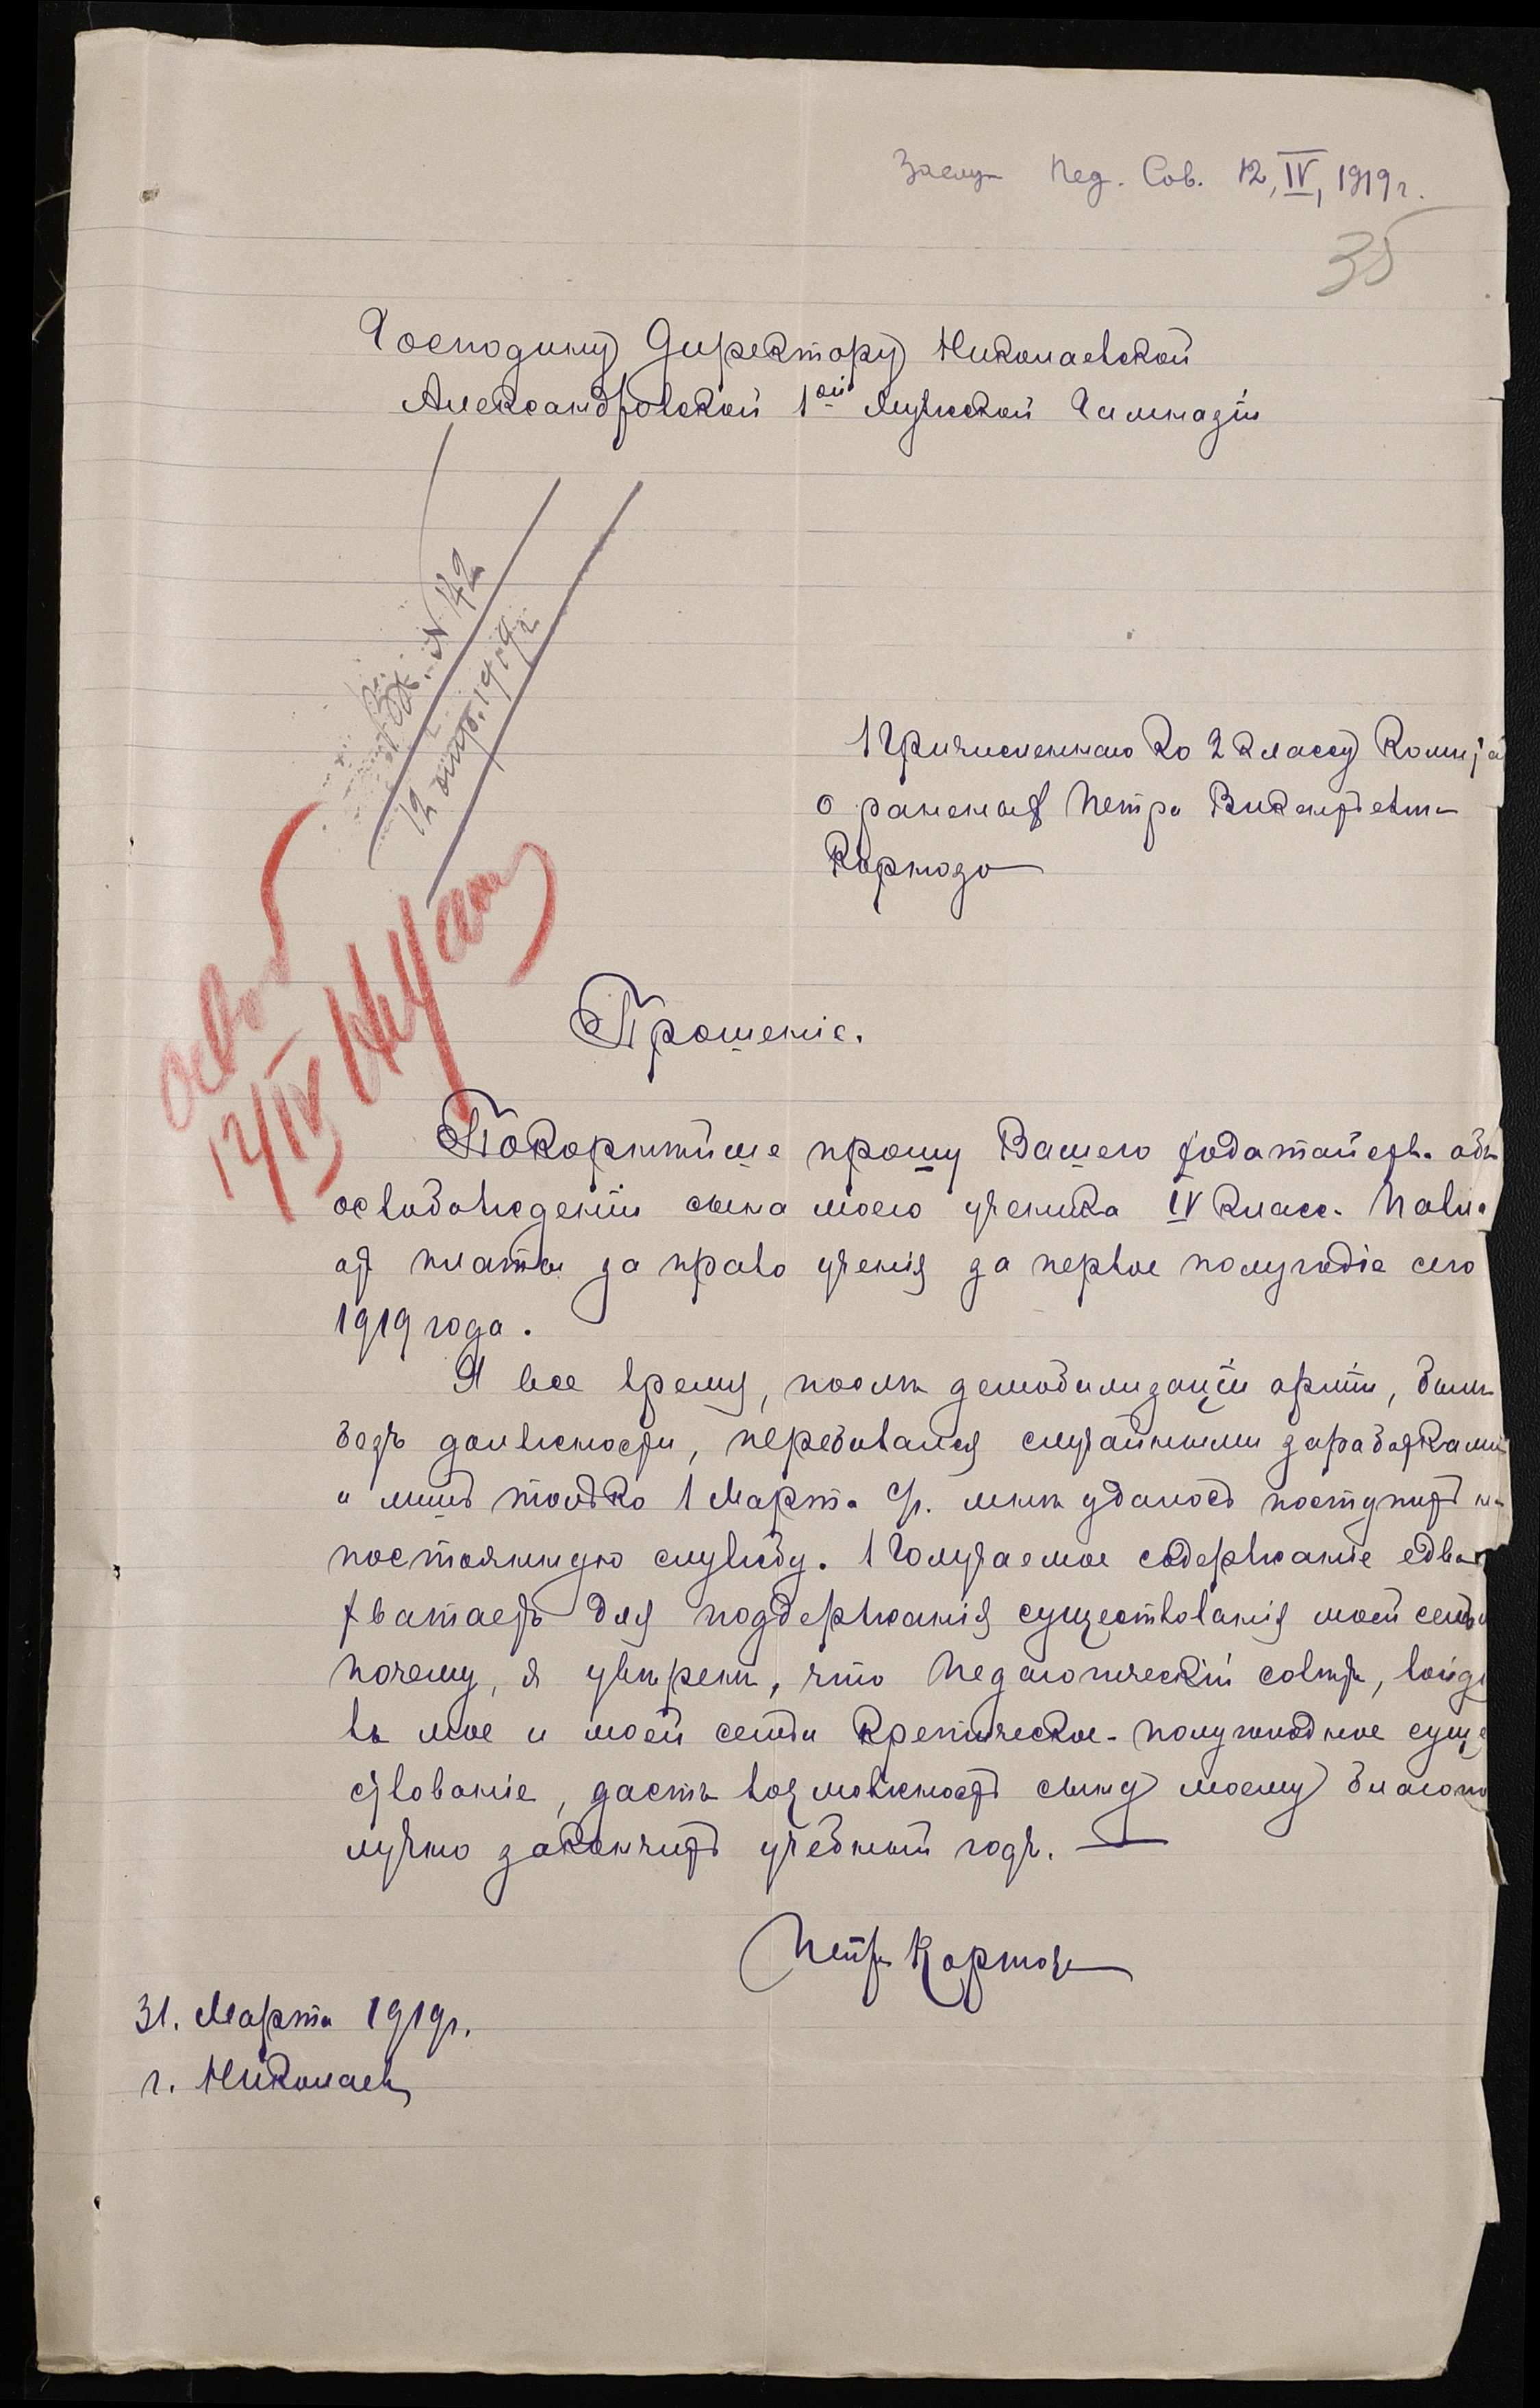 Пед. Сов. 12, IV, 1919 г.
35
Господину Директору Николаевской
Александровской 1ой Мужской Гимназіи
Вх. N 142
12 апр. 1919 г.
освоб
12/IV
Причисленнаго ко 2 классу Комит
о раненыхъ Петра Викентьевича
Прошеніе.
Покорнѣйше прошу Вашего ходатайства объ
освобожденіи сына моего ученика IV класса Павла
отъ платы за право ученія за первое полугодіе сего
1919 года.
Я все время, послѣ демобилизаціи арміи, былъ
безъ должности, перебивался случайными заработками
и лишь только 1 Марта с/г. мнѣ удалось поступить на
постоянную службу. Получаемое содержаніе едва
хватаетъ для поддержанія существованія моей семьи
почему, я увѣренъ, что Педагогическій совѣтъ, войдя
въ мое и моей семьи критическое-полуголодное суще
ствованіе, дастъ возможность сыну моему благопо
лучно закончить учебный годъ.
Петръ
31. Марта 1919 г.
г. Николаевъ